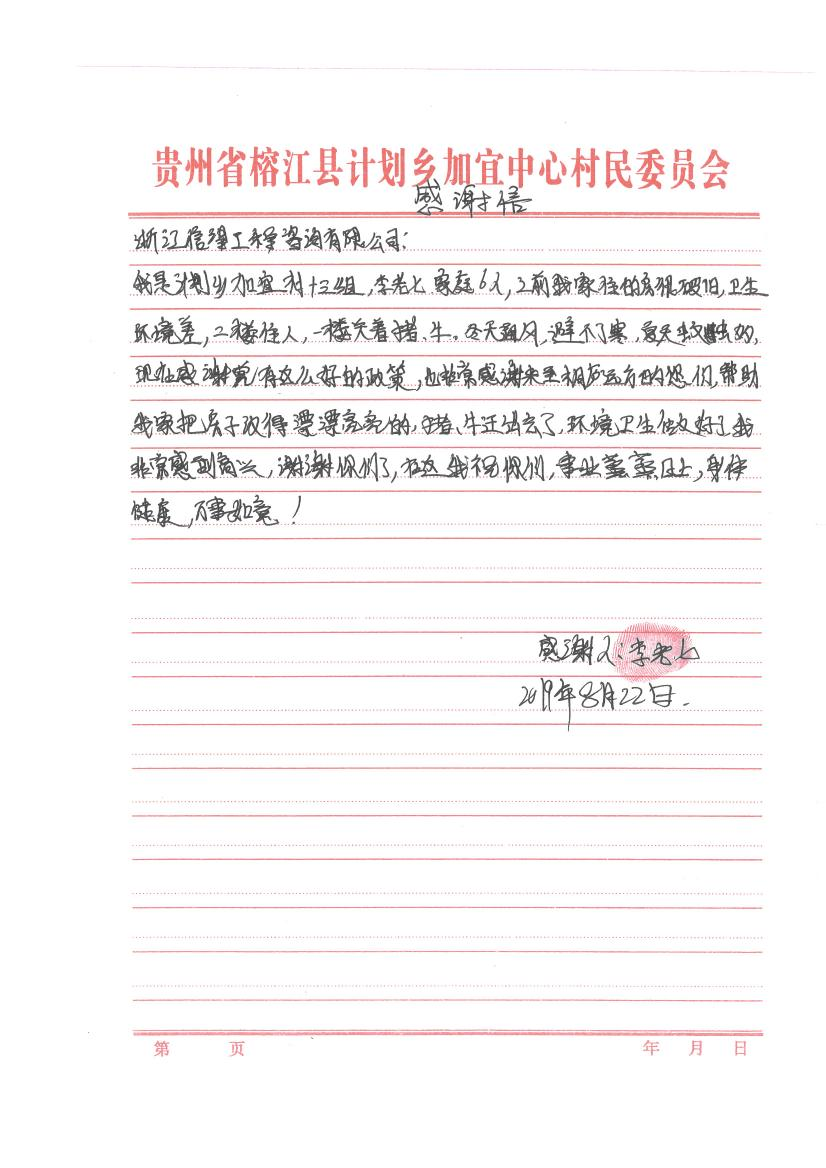 贵州省榕江县计划乡加宜中心村民委员会
感谢信
浙江信泽工程咨询有限公司:
我是计划乡加宜村十三组,李老七 家庭6人,之前我家住的房很破旧,卫生
环境差,二楼住人,一楼关着猪、牛。冬天漏风,避不了寒,夏天
现在感谢党有这么好的政策,也非常感谢来至相 远方的您们,帮助
我家把房子改得漂漂亮亮的,猪、牛迁出去了,环境卫生做好了我
非常感到高兴,谢谢你们了,在这我祝你们,事业蒸蒸日上,身体
健康,万事如意!
感谢人:李老七
2019年8月22日.
第 页 年 月 日